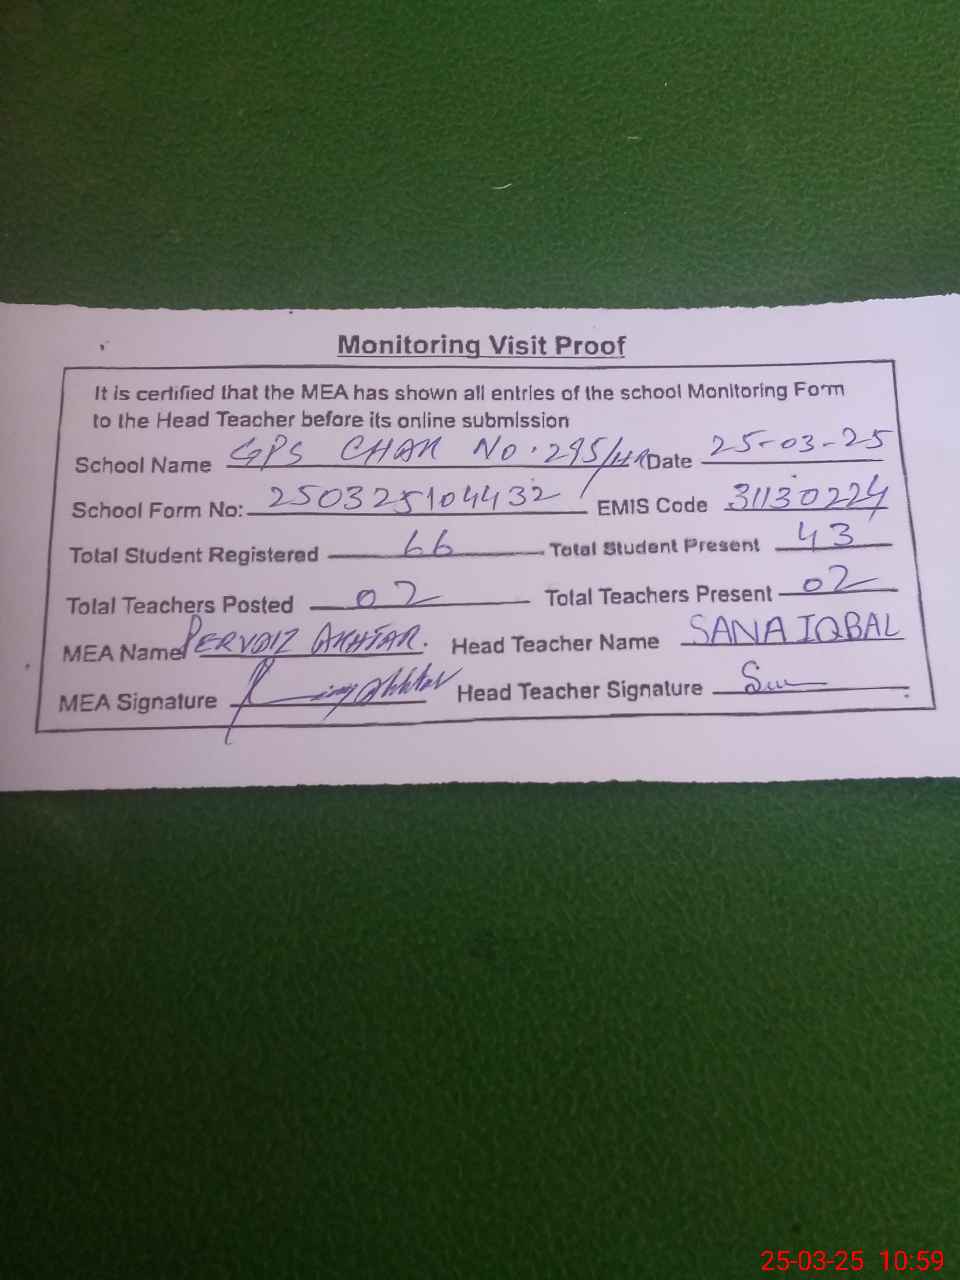 Monitoring Visit Proof
It is certified that the MEA has shown all entries of the school Monitoring Form
to the Head Teacher before its online submission
School Name GPS CHAK No. 295/HR Date 25-03-25
School Form No: 250325104432 EMIS Code 31130224
Total Student Registered 66 Total Student Present 43
Total Teachers Posted 02 Total Teachers Present 02
MEA Name PERVAIZ AKHTAR. Head Teacher Name SANA IQBAL
MEA Signature Akhtar Head Teacher Signature
25-03-25 10:59